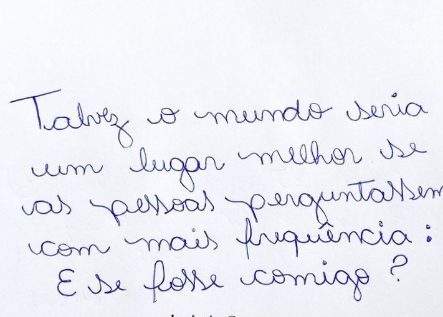 Talvez o mundo seria
um lugar melhor se
as pessoas perguntassem
com mais frequência:
E se fosse comigo?